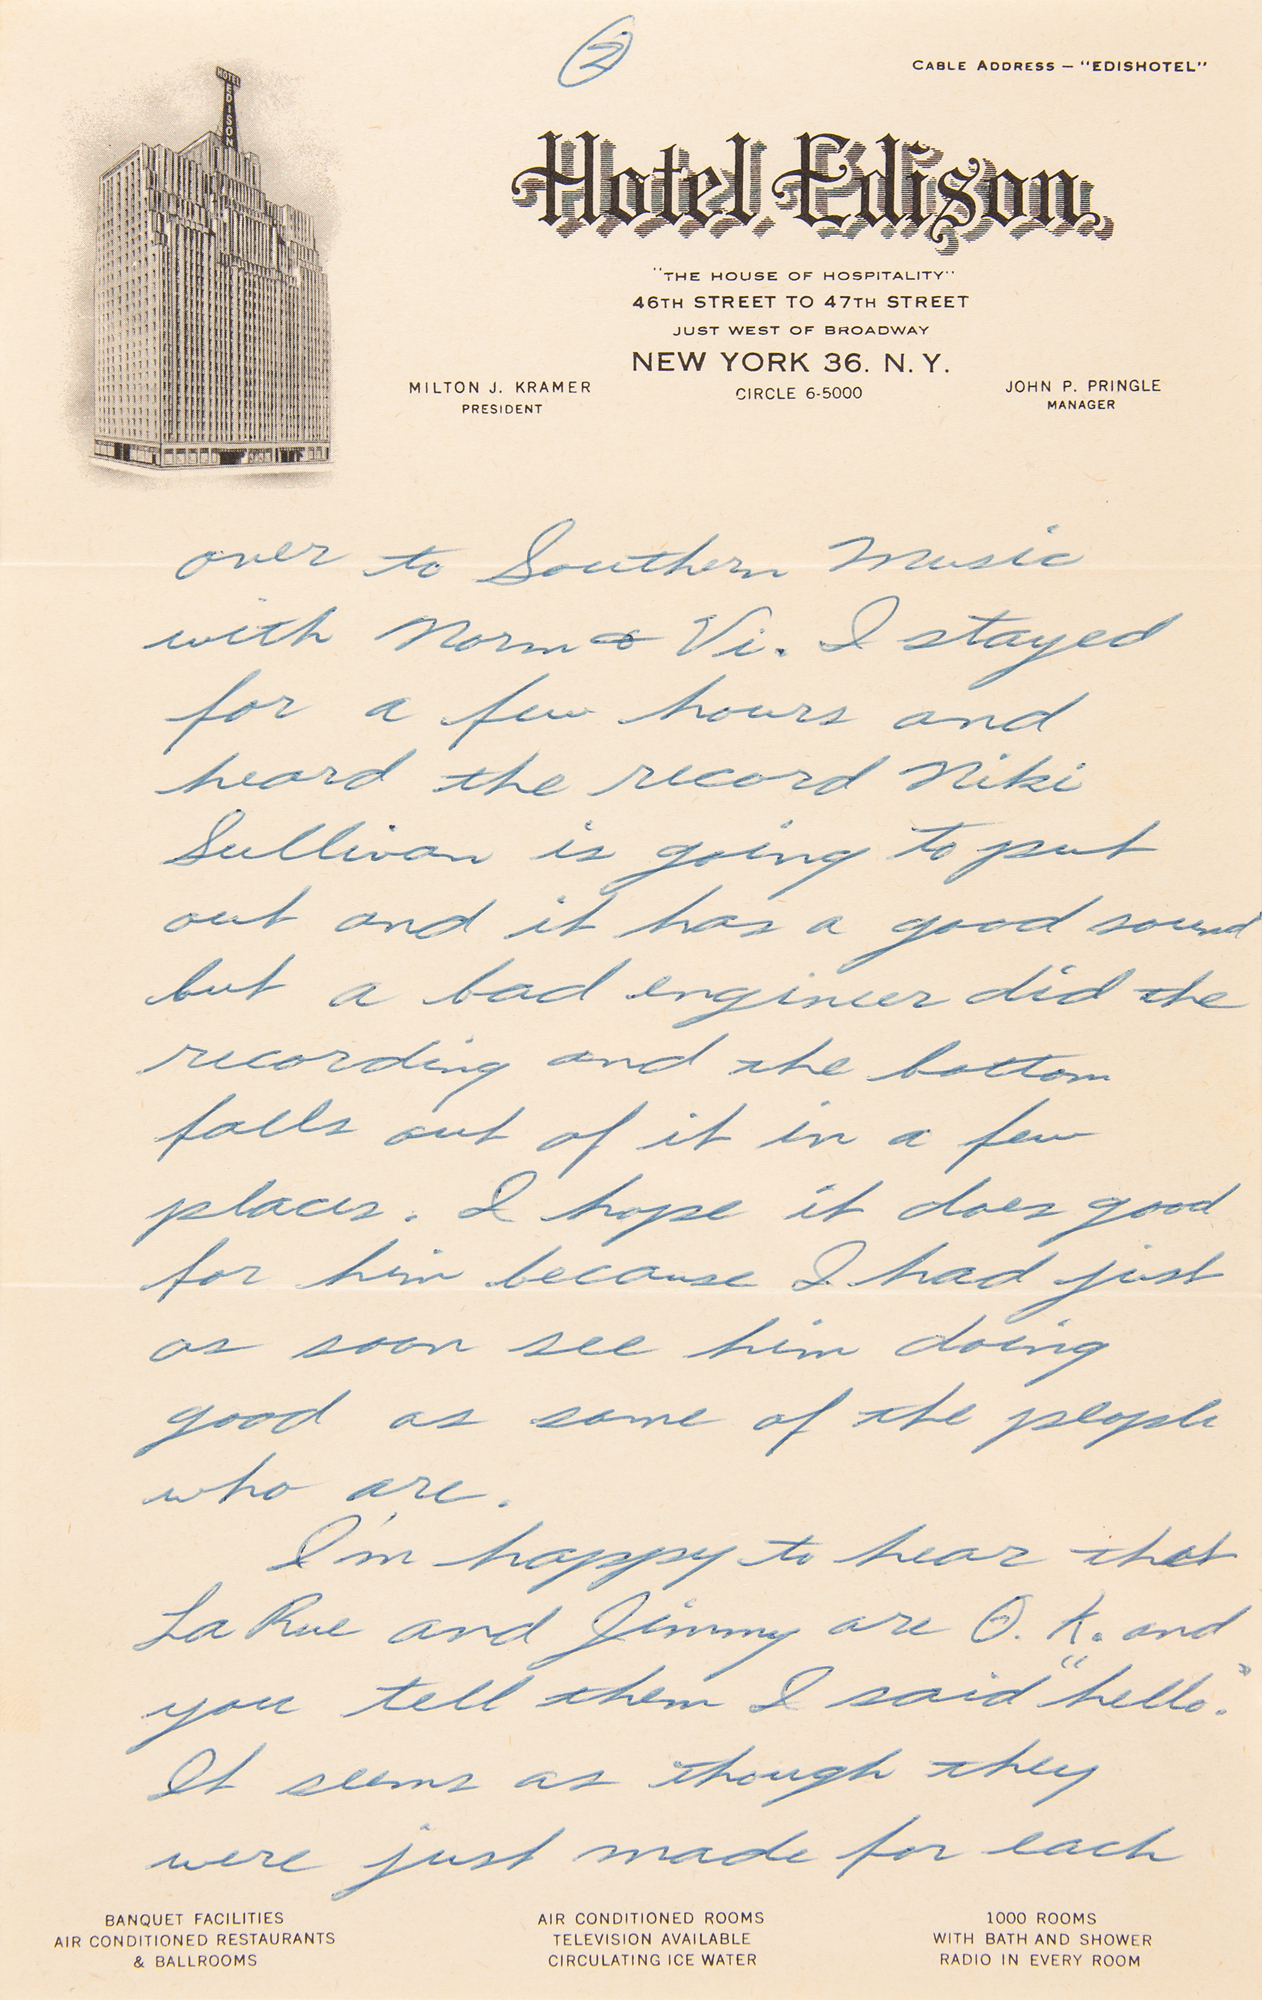 2
CABLE ADDRESS – "EDISHOTEL"
HOTEL
EDISON
Hotel Edison
"THE HOUSE OF HOSPITALITY"
46TH STREET TO 47TH STREET
JUST WEST OF BROADWAY
NEW YORK 36. N. Y.
MILTON J. KRAMER
PRESIDENT
CIRCLE 6-5000
JOHN P. PRINGLE
MANAGER
over to Southern Music
with Norm & Vi. I stayed
for a few hours and
heard the record Niki
Sullivan is going to put
out and it has a good sound
but a bad engineer did the
recording and the bottom
falls out of it in a few
places. I hope it does good
for him because I had just
as soon see him doing
good as some of the people
who are.
I'm happy to hear that
La Rue and Jimmy are O. K. and
you tell them I said "hello."
It seems as though they
were just made for each
BANQUET FACILITIES
AIR CONDITIONED RESTAURANTS
& BALLROOMS
AIR CONDITIONED ROOMS
TELEVISION AVAILABLE
CIRCULATING ICE WATER
1000 ROOMS
WITH BATH AND SHOWER
RADIO IN EVERY ROOM